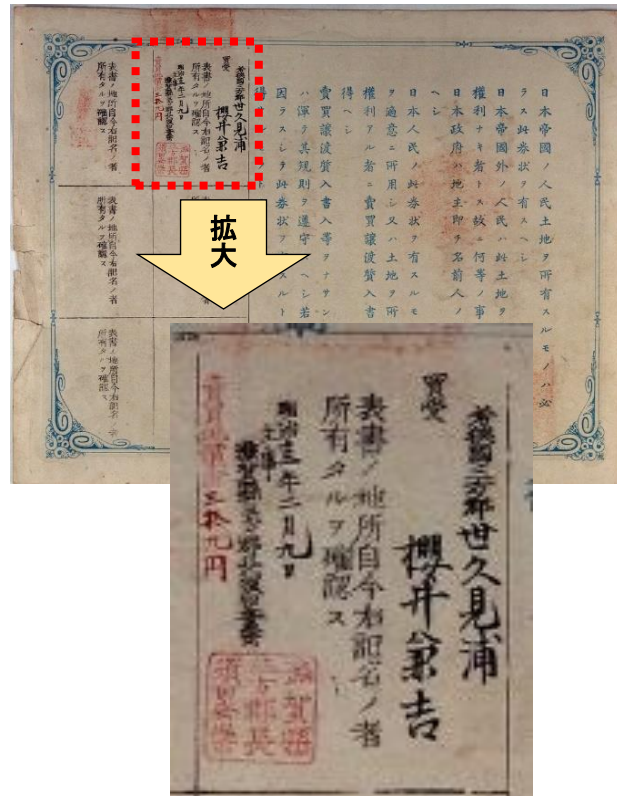 日本帝國ノ人民土地ヲ所有スルモノハ必
ラス此券状ヲ有スヘシ
日本帝國外ノ人民ハ此土地ヲ
權利ナキ者トス故ニ何等ノ事
日本政府ハ地主即ヲ名前人ノ
ヘシ
日本人民ノ此券状ヲ有スルモ
ヲ適意ニ所用シ又ハ土地ヲ所
權利アル者ニ賣買譲渡質入書
得ヘシ
賣買譲渡質入書入等ヲナサン
ハ渾テ其規則ヲ遵守スヘシ若
因ラスシテ此券状ヲ有スルト
買受
世久見浦
櫻井
吉
表書ノ地所自今右記名ノ者
所有タルヲ確認ス
表書ノ地所自今右記名ノ者
所有タルヲ確認ス
表書ノ地所自今右記名ノ者
所有タルヲ確認ス
表書ノ地所自今右記名ノ者
所有タルヲ確認ス
拡大
若狭國三方郡世久見浦
買受
櫻井
吉
表書ノ地所自今右記名ノ者
所有タルヲ確認ス
年二月九日
滋賀縣
三拾九円
滋賀縣
三方郡長